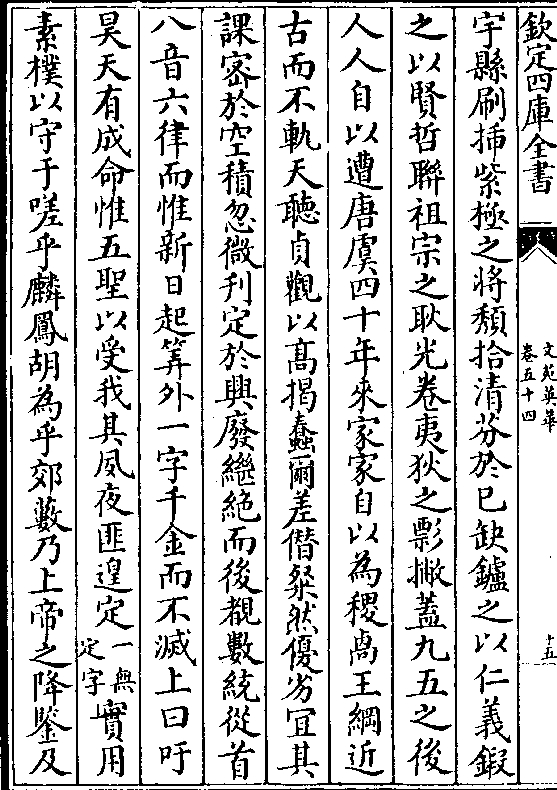 欽定四庫全書
文苑英華
卷五十四
十五
宇縣刷揷紫極之將頽拾清芬於已缺鑪之以仁義鍜
之以賢哲聯祖宗之耿光卷夷狄之影撇蓋九五之後
人人自以遭唐虞四十年來家家自以為稷卨王綱近
古而不軌天聽貞觀以髙揭蠢爾差僣粲然優劣宜其
課宻於空積忽微刋定於興廢繼絶而後覩數統從首
八音六律而惟新日起筭外一字千金而不滅上曰吁
昊天有成命惟五聖以受我其夙夜匪遑定一無定字實用
素樸以守于嗟乎麟鳳胡為乎郊藪乃上帝之降鑒及